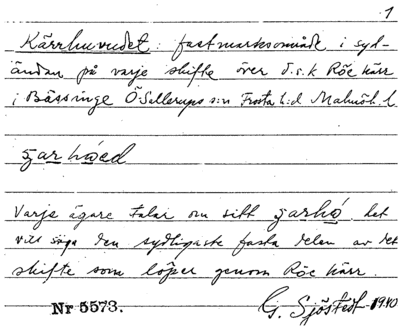 1
Kärrhuvudet: fastmarksområde i syd-
ändan på varje skifte över d.s.k Röe kärr
i Bässinge Ö. Sallerups s:n Frosta h:d Malmöh. l.
tjarhöed
Varje ägare talar om sitt tjarhö det
vill säga den sydligaste fasta delen av det
skifte som löper genom Röe kärr.
Nr 5573.
G. Sjöstedt 1940